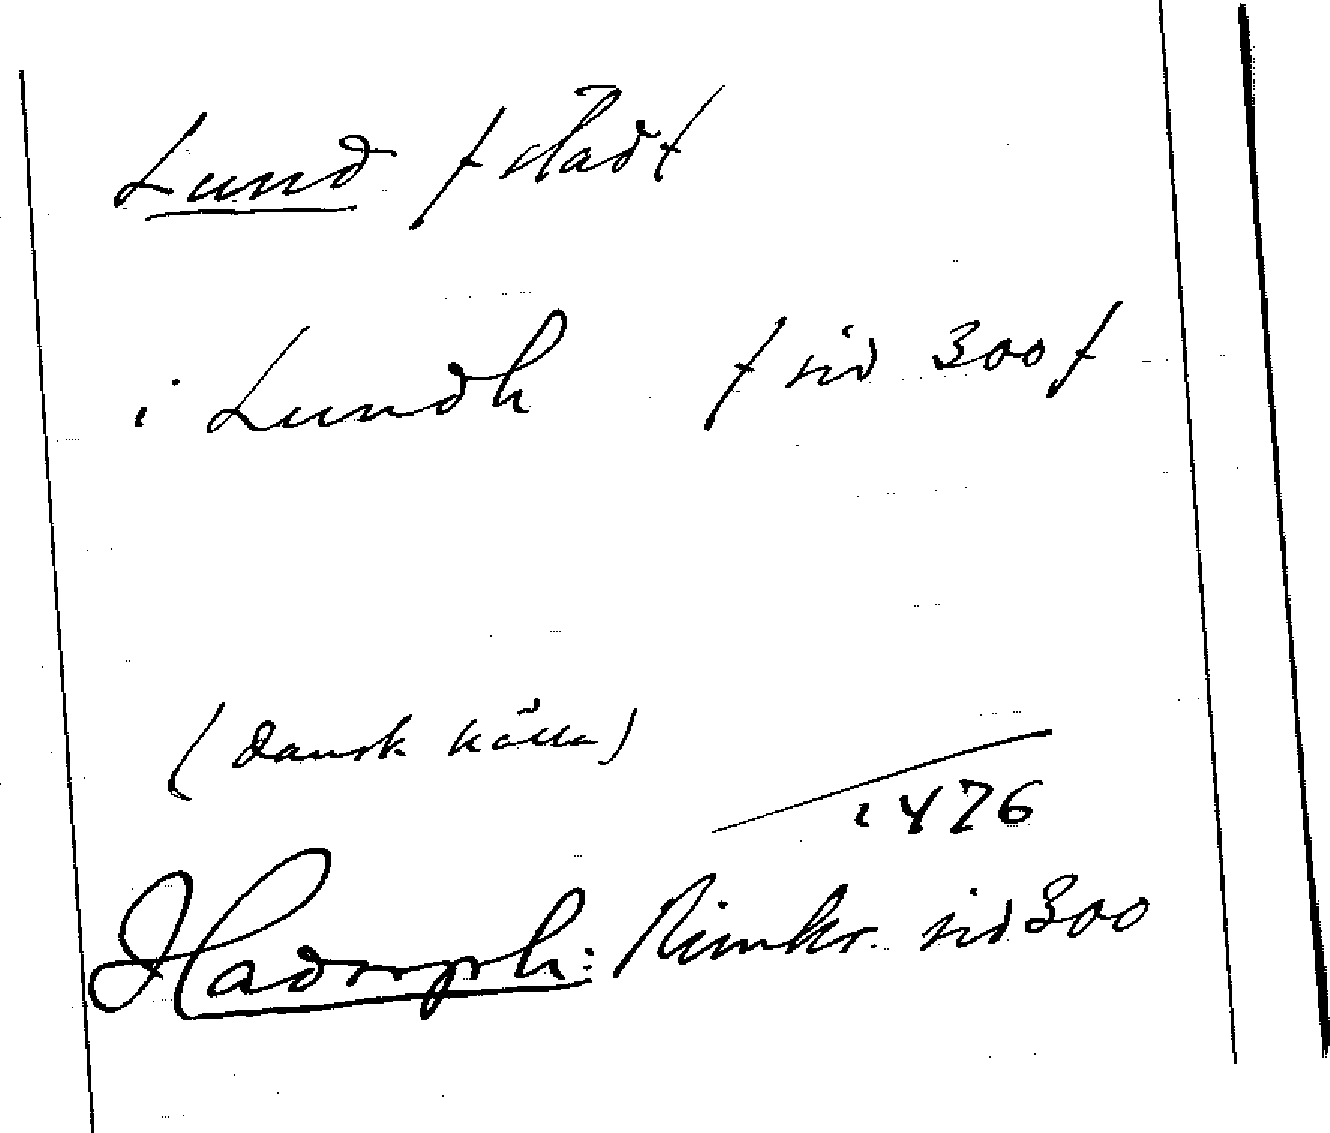 Lund / stad /
i Lundh / sid 300 /
(dansk källa)
1476
Hadorph: Rimkr. sid 300